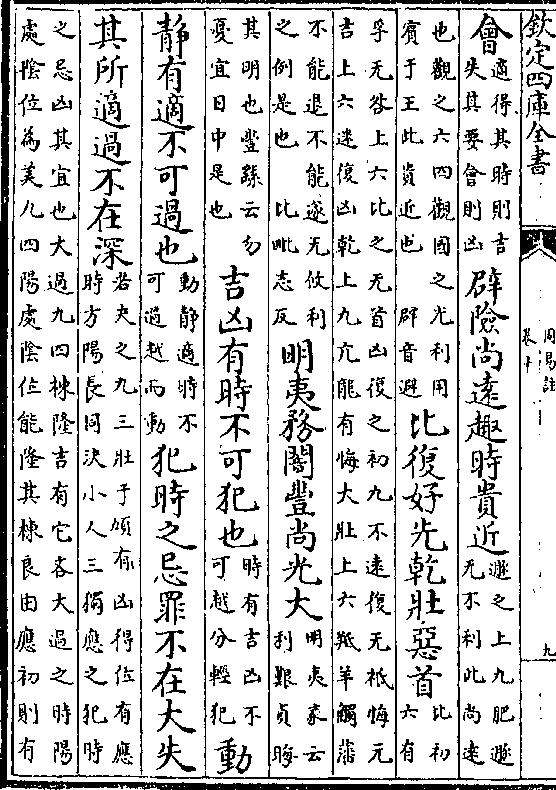 欽定四庫全書
周易註
卷十
九
會
適得其時則吉
失其要會則凶
辟險尚遠趣時貴近
遯之上九肥遯
无不利此尚遠
也觀之六四觀國之光利用
賓于王此貴近也 辟音避
比復好先乾壯惡首
比初
六有
孚无咎上六比之无首凶復之初九不遠復无祇悔元
吉上六迷復凶乾上九亢龍有悔大壯上六羝羊觸藩
不能退不能遂无攸利
之例是也 比毗志反
明夷務闇豐尚光大
明夷彖云
利艱貞晦
其明也豐繇云勿
憂宜日中是也
吉凶有時不可犯也
時有吉凶不
可越分輕犯
動
靜有適不可過也
動靜適時不
可過越而動
犯時之忌罪不在大失
其所適過不在深
若夬之九三壯于頄有凶得位有應
時方陽長同決小人三獨應之犯時
之忌凶其宜也大過九四棟隆吉有它吝大過之時陽
處陰位為美九四陽處陰位能隆其棟良由應初則有